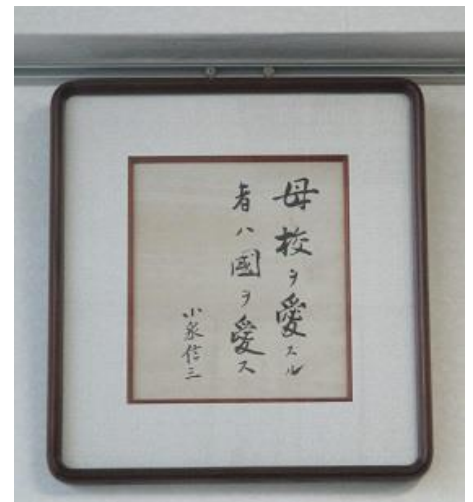 母校ヲ愛スル
者ハ國ヲ愛ス
小泉信三